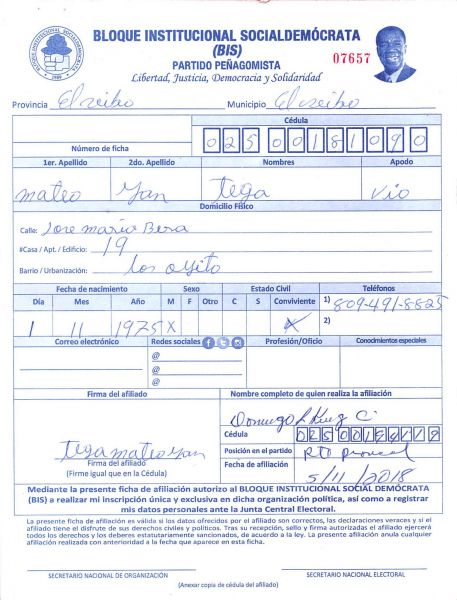 BLOQUE INSTITUCIONAL SOCIALDEMOCRATA
1989
BLOQUE INSTITUCIONAL SOCIALDEMÓCRATA
(BIS)
PARTIDO PEÑAGOMISTA
Libertad, Justicia, Democracia y Solidaridad
07657
Provincia El seibo Municipio El seibo
Cédula
Número de ficha 025 0018109 0
1er. Apellido 2do. Apellido Nombres Apodo
mateo Yan tega Vio
Domicilio Físico
Calle: Jose maria Bera
#Casa / Apt. / Edificio: 19
Barrio / Urbanización: los oyito
Fecha de nacimiento Sexo Estado Civil Teléfonos
Día Mes Año M F Otro C S Conviviente 1) 809-491-8825
1 11 1975 X X 2)
Correo electrónico Redes sociales Profesión/Oficio Conocimientos especiales
@
@
@
Firma del afiliado Nombre completo de quien realiza la afiliación
Domingo
Cédula
tega mateo Yan
Firma del afiliado
(Firme igual que en la Cédula)
Posición en el partido
Fecha de afiliación
5/11/2018
Mediante la presente ficha de afiliación autorizo al BLOQUE INSTITUCIONAL SOCIAL DEMÓCRATA
(BIS) a realizar mi inscripción única y exclusiva en dicha organización política, así como a registrar
mis datos personales ante la Junta Central Electoral.
La presente ficha de afiliación es válida si los datos ofrecidos por el afiliado son correctos, las declaraciones veraces y si el
afiliado tiene el disfrute de sus derechos civiles y políticos. Tras su recepción, sello y firma autorizadas el afiliado ejercerá
todos los derechos y los deberes estatutariamente sancionados, de acuerdo a la ley. La presente afiliación anula cualquier
afiliación realizada con anterioridad a la fecha que aparece en esta ficha.
SECRETARIO NACIONAL DE ORGANIZACIÓN SECRETARIO NACIONAL ELECTORAL
(Anexar copia de cédula del afiliado)